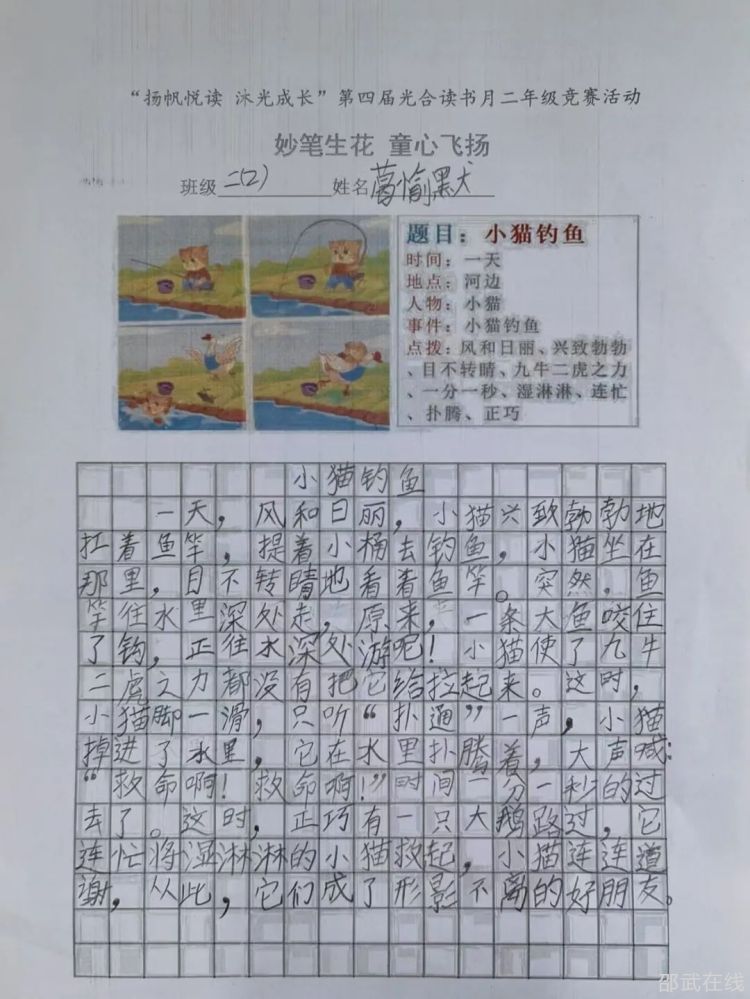 “扬帆悦读 沐光成长”第四届光合读书月二年级竞赛活动
妙笔生花 童心飞扬
班级 二(2) 姓名 葛愉默
题目：小猫钓鱼
时间：一天
地点：河边
人物：小猫
事件：小猫钓鱼
点拨：风和日丽、兴致勃勃
、目不转睛、九牛二虎之力
、一分一秒、湿淋淋、连忙
、扑腾、正巧
小猫钓鱼
一天，风和日丽，小猫兴致勃勃地
扛着鱼竿，提着小桶去钓鱼，小猫坐在
那里，目不转睛地看着鱼竿。突然，鱼
竿往水里深处走，原来，一条大鱼咬住
了钩，正往水深处游呢！小猫使了九牛
二虎之力都没有把它给拉起来。这时，
小猫脚一滑，只听“扑通”一声，小猫
掉进了水里，它在水里扑腾着，大声喊：
“救命啊！救命啊！”时间一分一秒的过
去了。这时，正巧有一只大鹅路过，它
连忙将湿淋淋的小猫救起，小猫连连道
谢，从此，它们成了形影不离的好朋友。
邵武在线